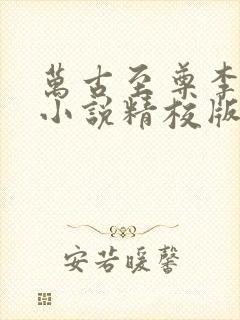 萬古至尊李
小說精校版
安若暖馨